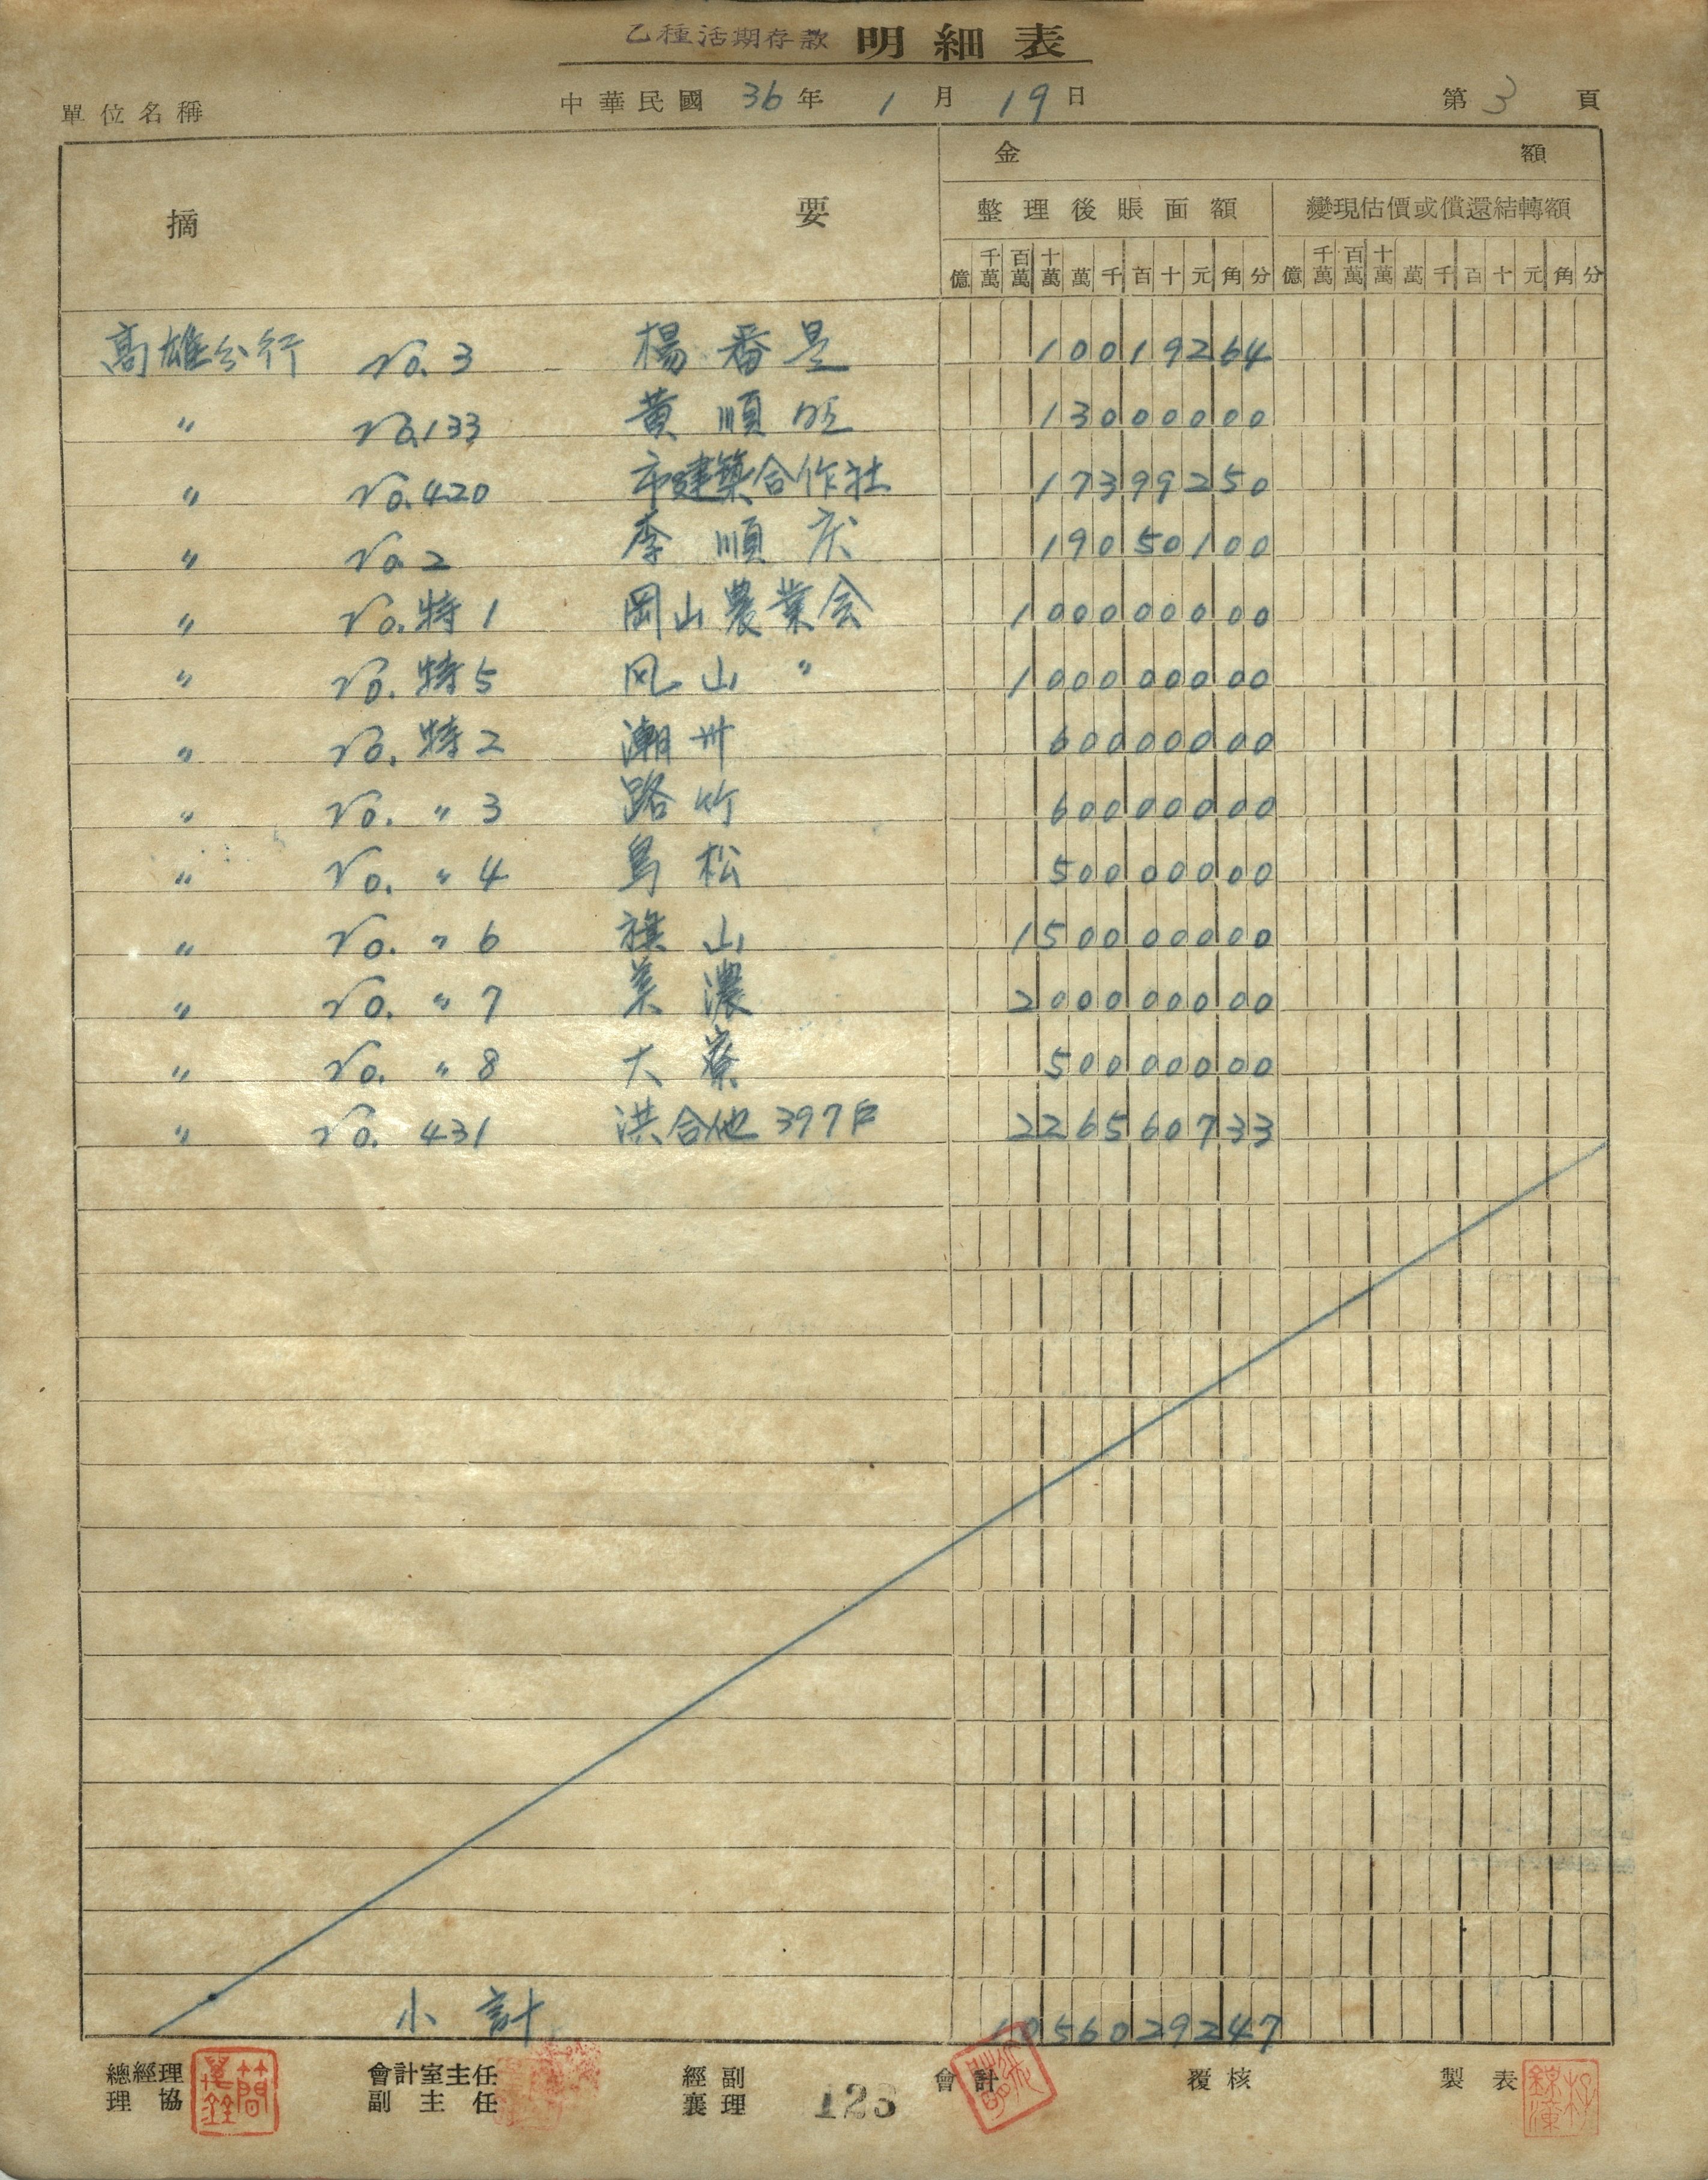 乙種活期存款 明細表
單位名稱 中華民國 36 年 1 月 19 日 第 3 頁
摘要 金額
整理後賬面額 變現估價或償還結轉額
億 千萬 百萬 十萬 萬 千 百 十 元 角 分 億 千萬 百萬 十萬 萬 千 百 十 元 角 分
高雄分行 No. 3 楊番是 10019264
〃 No.133 黃順 13000000
〃 No.420 市建築合作社 17399250
〃 No.2 李順 19050100
〃 No.特1 岡山農業会 100000000
〃 No.特5 风山 〃 100000000
〃 No.特2 潮卅 60000000
〃 No. 〃 3 路竹 60000000
〃 No. 〃 4 鳥松 50000000
〃 No. 〃 6 旗山 150000000
〃 No. 〃 7 美濃 200000000
〃 No. 〃 8 大寮 50000000
〃 No. 431 洪合他 397戶 226560733
小計 1056029247
總經理 會計室主任 經副 會計 覆核 製表
協理 副主任 襄理 123